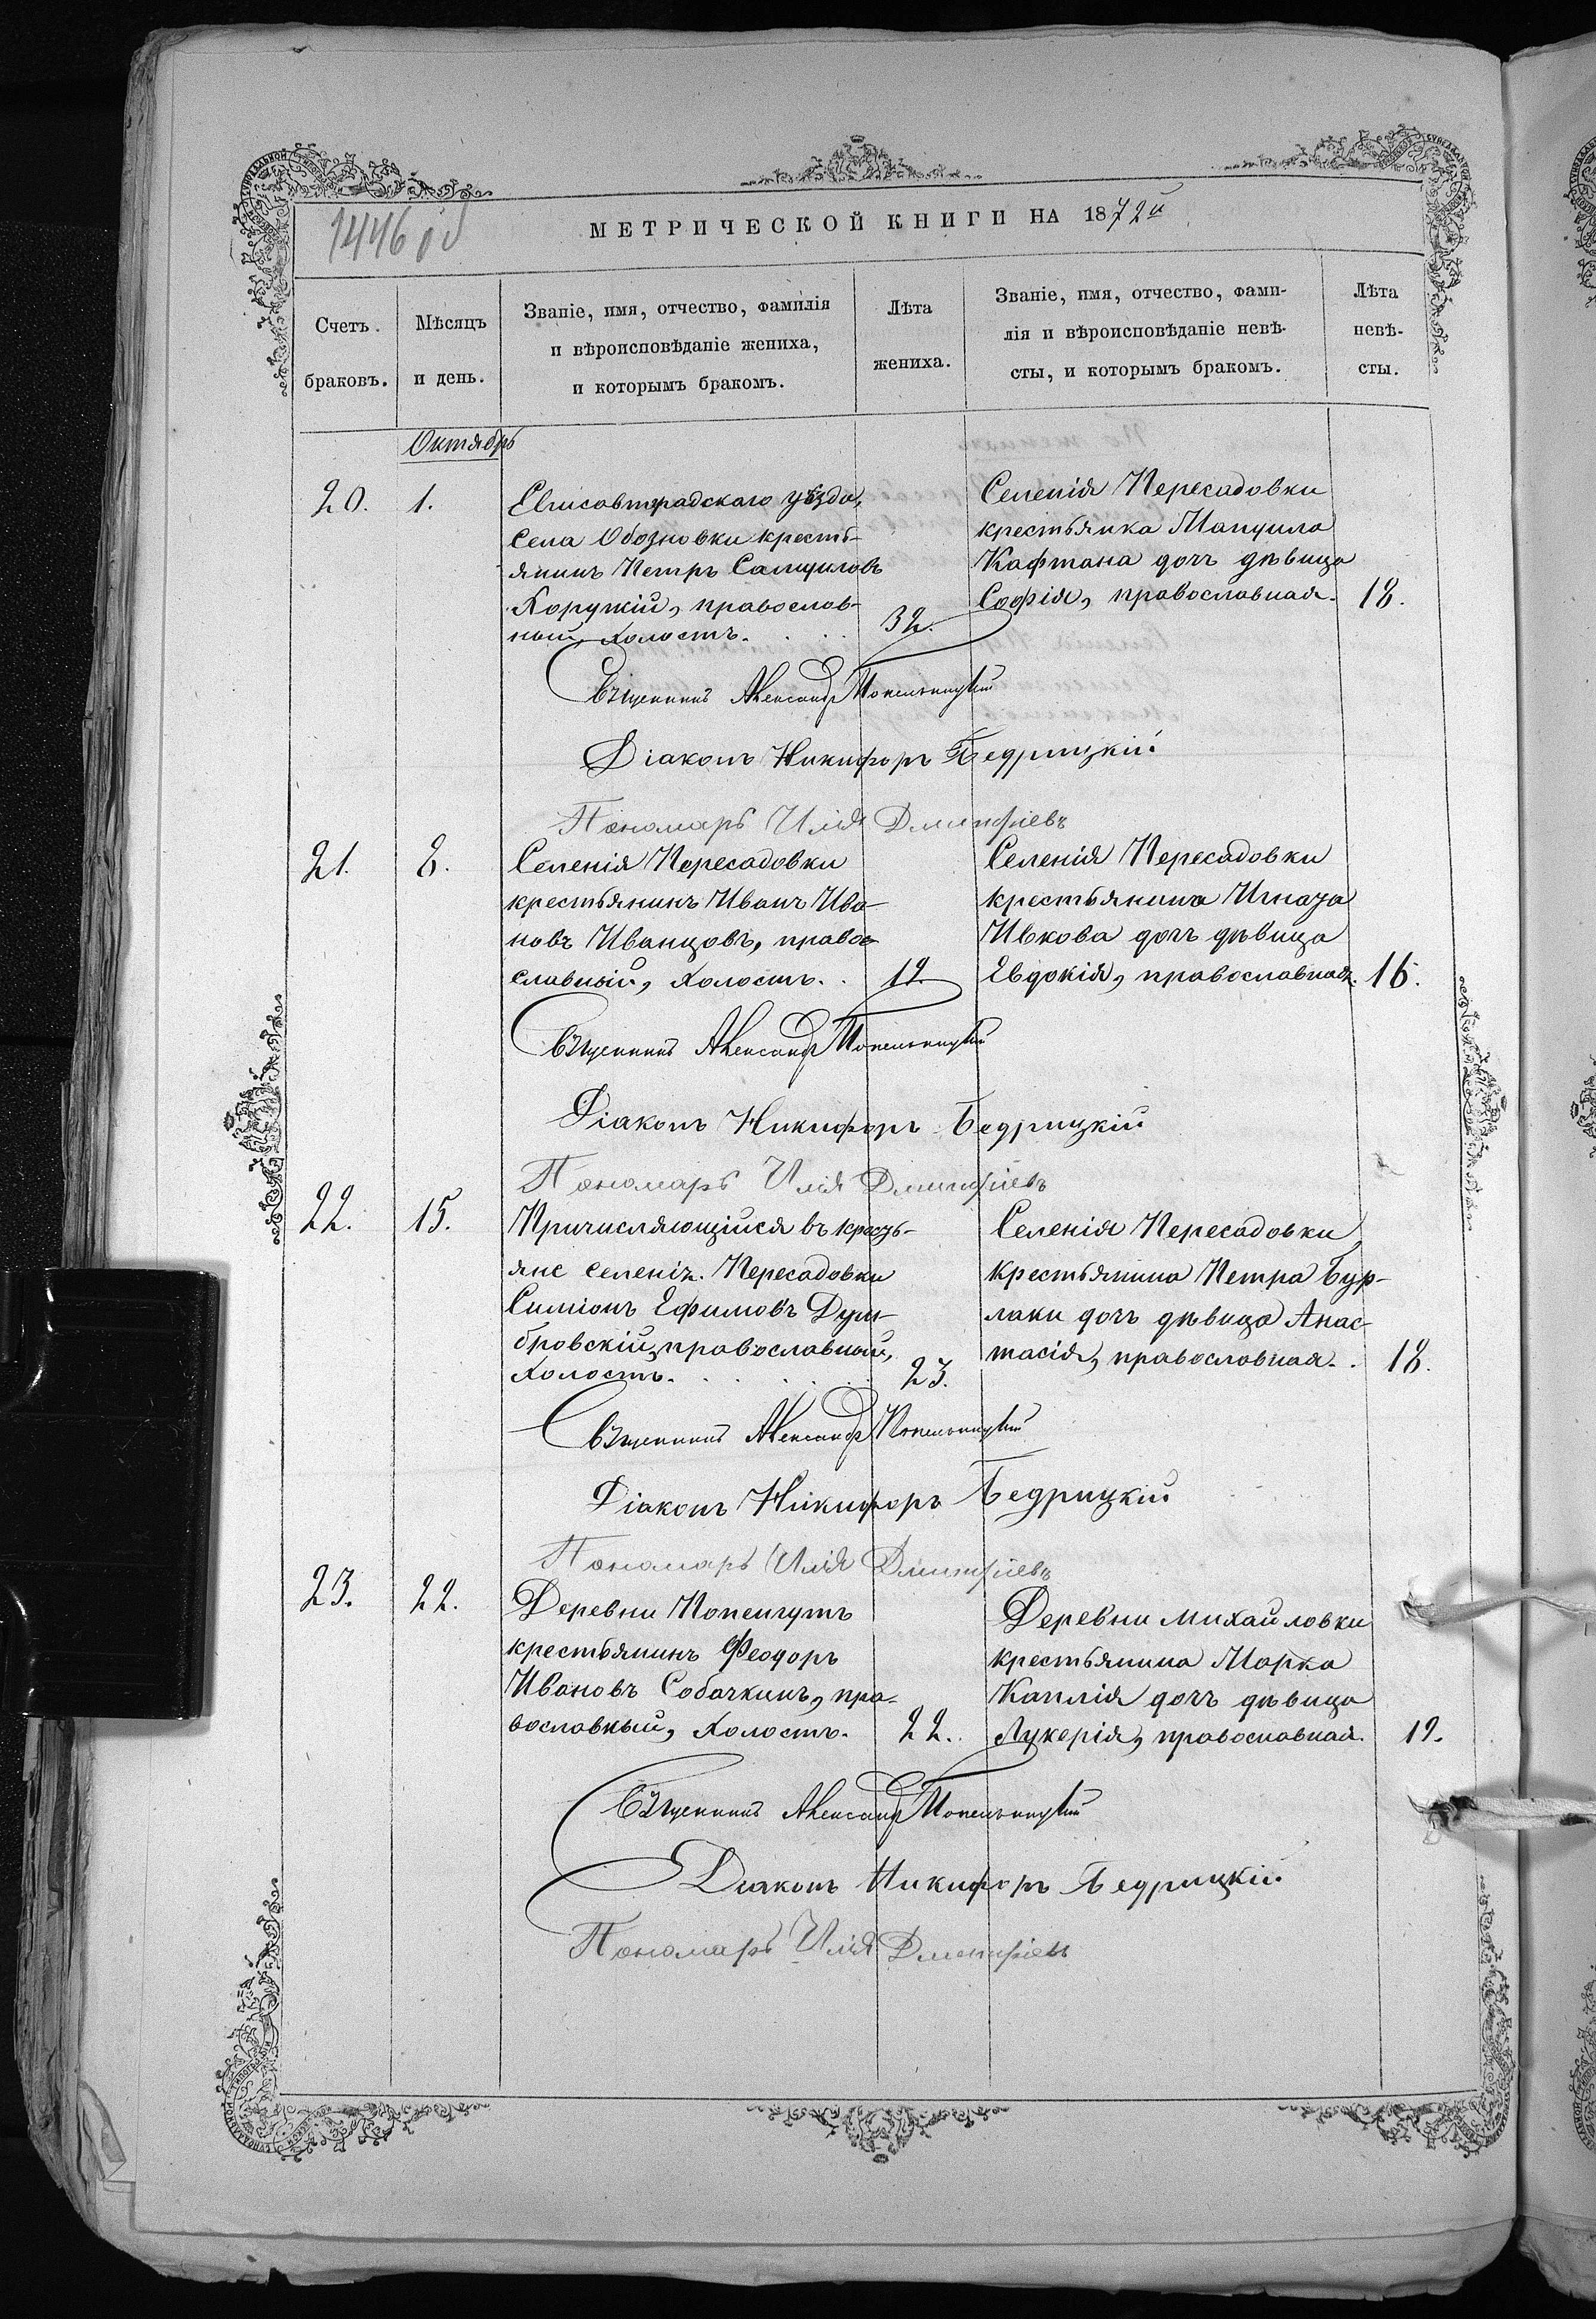 1446 об
МЕТРИЧЕСКОЙ КНИГИ НА 1872й
Счетъ браковъ.
Мѣсяцъ и день.
Званіе, имя, отчество, фамилія
и вѣроисповѣданіе жениха,
и которымъ бракомъ.
Лѣта
жениха.
Званіе, имя, отчество, фами-
лія и вѣроисповѣданіе невѣ-
сты, и которымъ бракомъ.
Лѣта
невѣ-
сты.
Октябрь
20.
1.
Елисаветградскаго уѣзда,
села Обозновки кресть-
янинъ Петръ Самуиловъ
Хоружій, православ-
ный, холостъ.
32.
Селенія Пересадовки
крестьянина Мануила
Кафтана дочь дѣвица
Софія, православная.
18.
Священникъ Александръ Попельницкій
Діаконъ Никифоръ Бедрицкій
Пономарь Илія Дмитріевъ
21.
8.
Селенія Пересадовки
крестьянинъ Иванъ Ива-
новъ Иванцовъ, право-
славный, холостъ.
19.
Селенія Пересадовки
крестьянина Игната
Ивкова дочь дѣвица
Евдокія, православная.
16.
Священникъ Александръ Попельницкій
Діаконъ Никифоръ Бедрицкій
Пономарь Илія Дмитріевъ
22.
15.
Причисляющійся въ кресть-
яне селенія Пересадовки
Симіонъ Ефимовъ Дум-
бровскій, православный,
холостъ.
23.
Селенія Пересадовки
крестьянина Петра Бур-
лаки дочь дѣвица Анас-
тасія, православная.
18.
Священникъ Александръ Попельницкій
Діаконъ Никифоръ Бедрицкій
Пономарь Илія Дмитріевъ
23.
22.
Деревни
крестьянинъ Феодоръ
Ивановъ Собачкинъ, пра-
вославный, холостъ.
22.
Деревни Михайловки
крестьянина Марка
Каплія дочь дѣвица
Лукерія, православная.
19.
Священникъ Александръ Попельницкій
Діаконъ Никифоръ Бедрицкій
Пономарь Илія Дмитріевъ